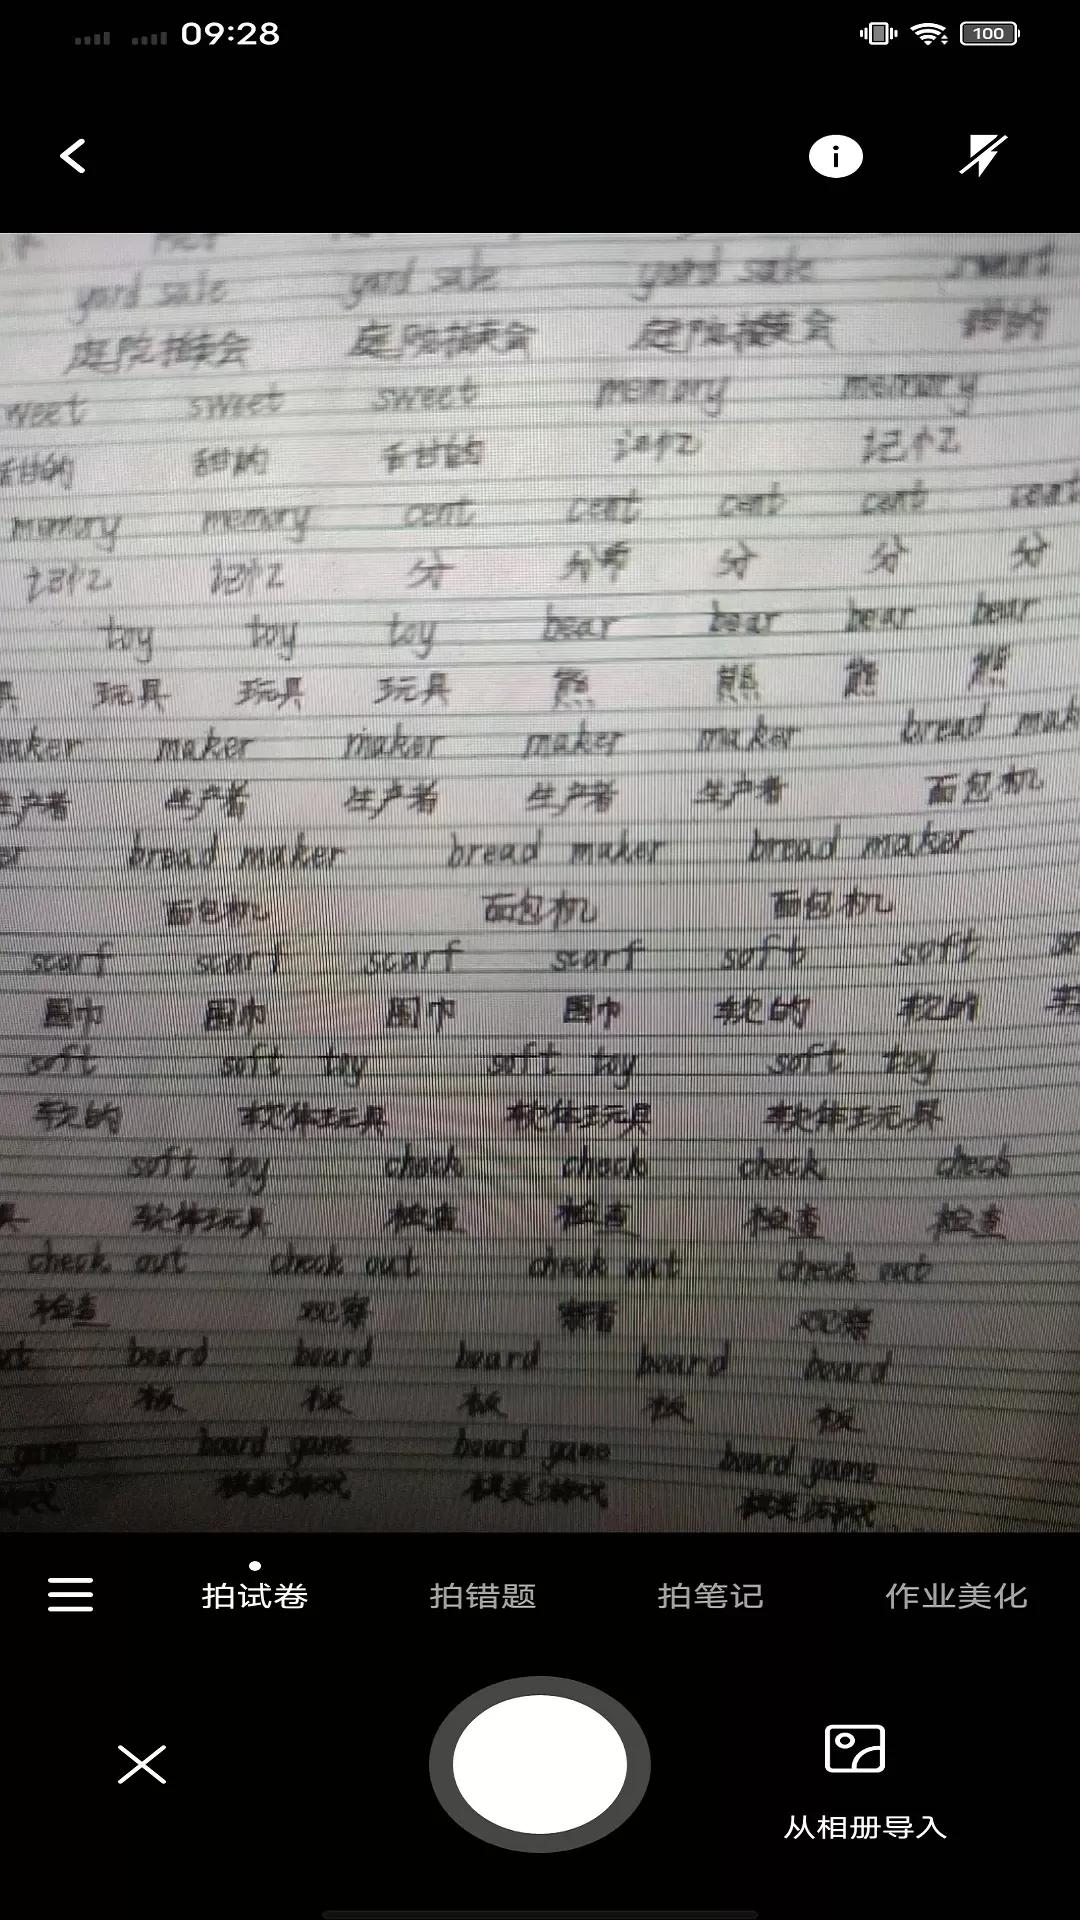 09:28
100
yard sale yard sale yard sale sweet
庭院拍卖会 庭院拍卖会 庭院拍卖会 甜的
weet sweet sweet memory memory
甜的 甜的 甜的 记忆 记忆
memory memory cent cent cent cent cent
记忆 记忆 分 分 分 分
toy toy toy bear bear bear bear
具 玩具 玩具 玩具 熊 熊 熊 熊
maker maker maker maker maker bread mak
生产者 生产者 生产者 生产者 生产者 面包机
er bread maker bread maker bread maker
面包机 面包机 面包机
scarf scarf scarf scarf soft soft so
围巾 围巾 围巾 围巾 软的 软的 软
soft soft toy soft toy soft toy
软的 软体玩具 软体玩具 软体玩具
soft toy check check check check
具 软体玩具 检查 检查 检查 检查
check out check out check out check out
检查 观察 察看 观察
board board board board board
板 板 板 板 板
game board game board game board game
棋类游戏 棋类游戏 棋类游戏
拍试卷 拍错题 拍笔记 作业美化
从相册导入